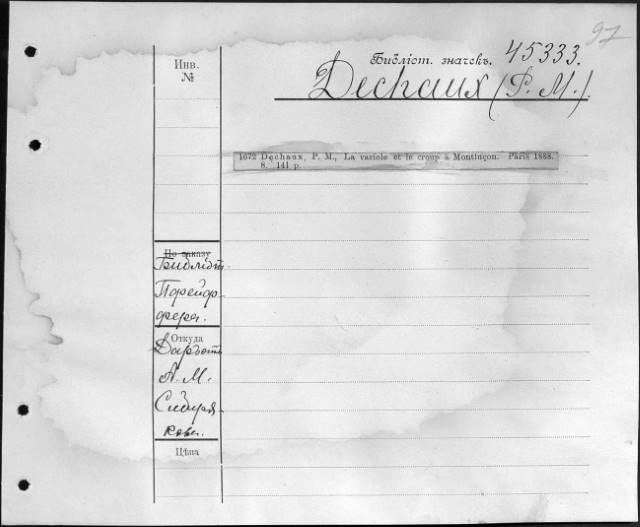 97
Библіот. значекъ. 45333.
Инв.
№
Dechaux (P. M.).
1672 Dechaux, P. M., La variole et le croup à Montluçon. Paris 1888.
8. 141 p.
По заказу
Библіот.
Порейор-
фера.
Откуда
Даръ отъ
А. М.
Сибиря-
кова.
Цѣна